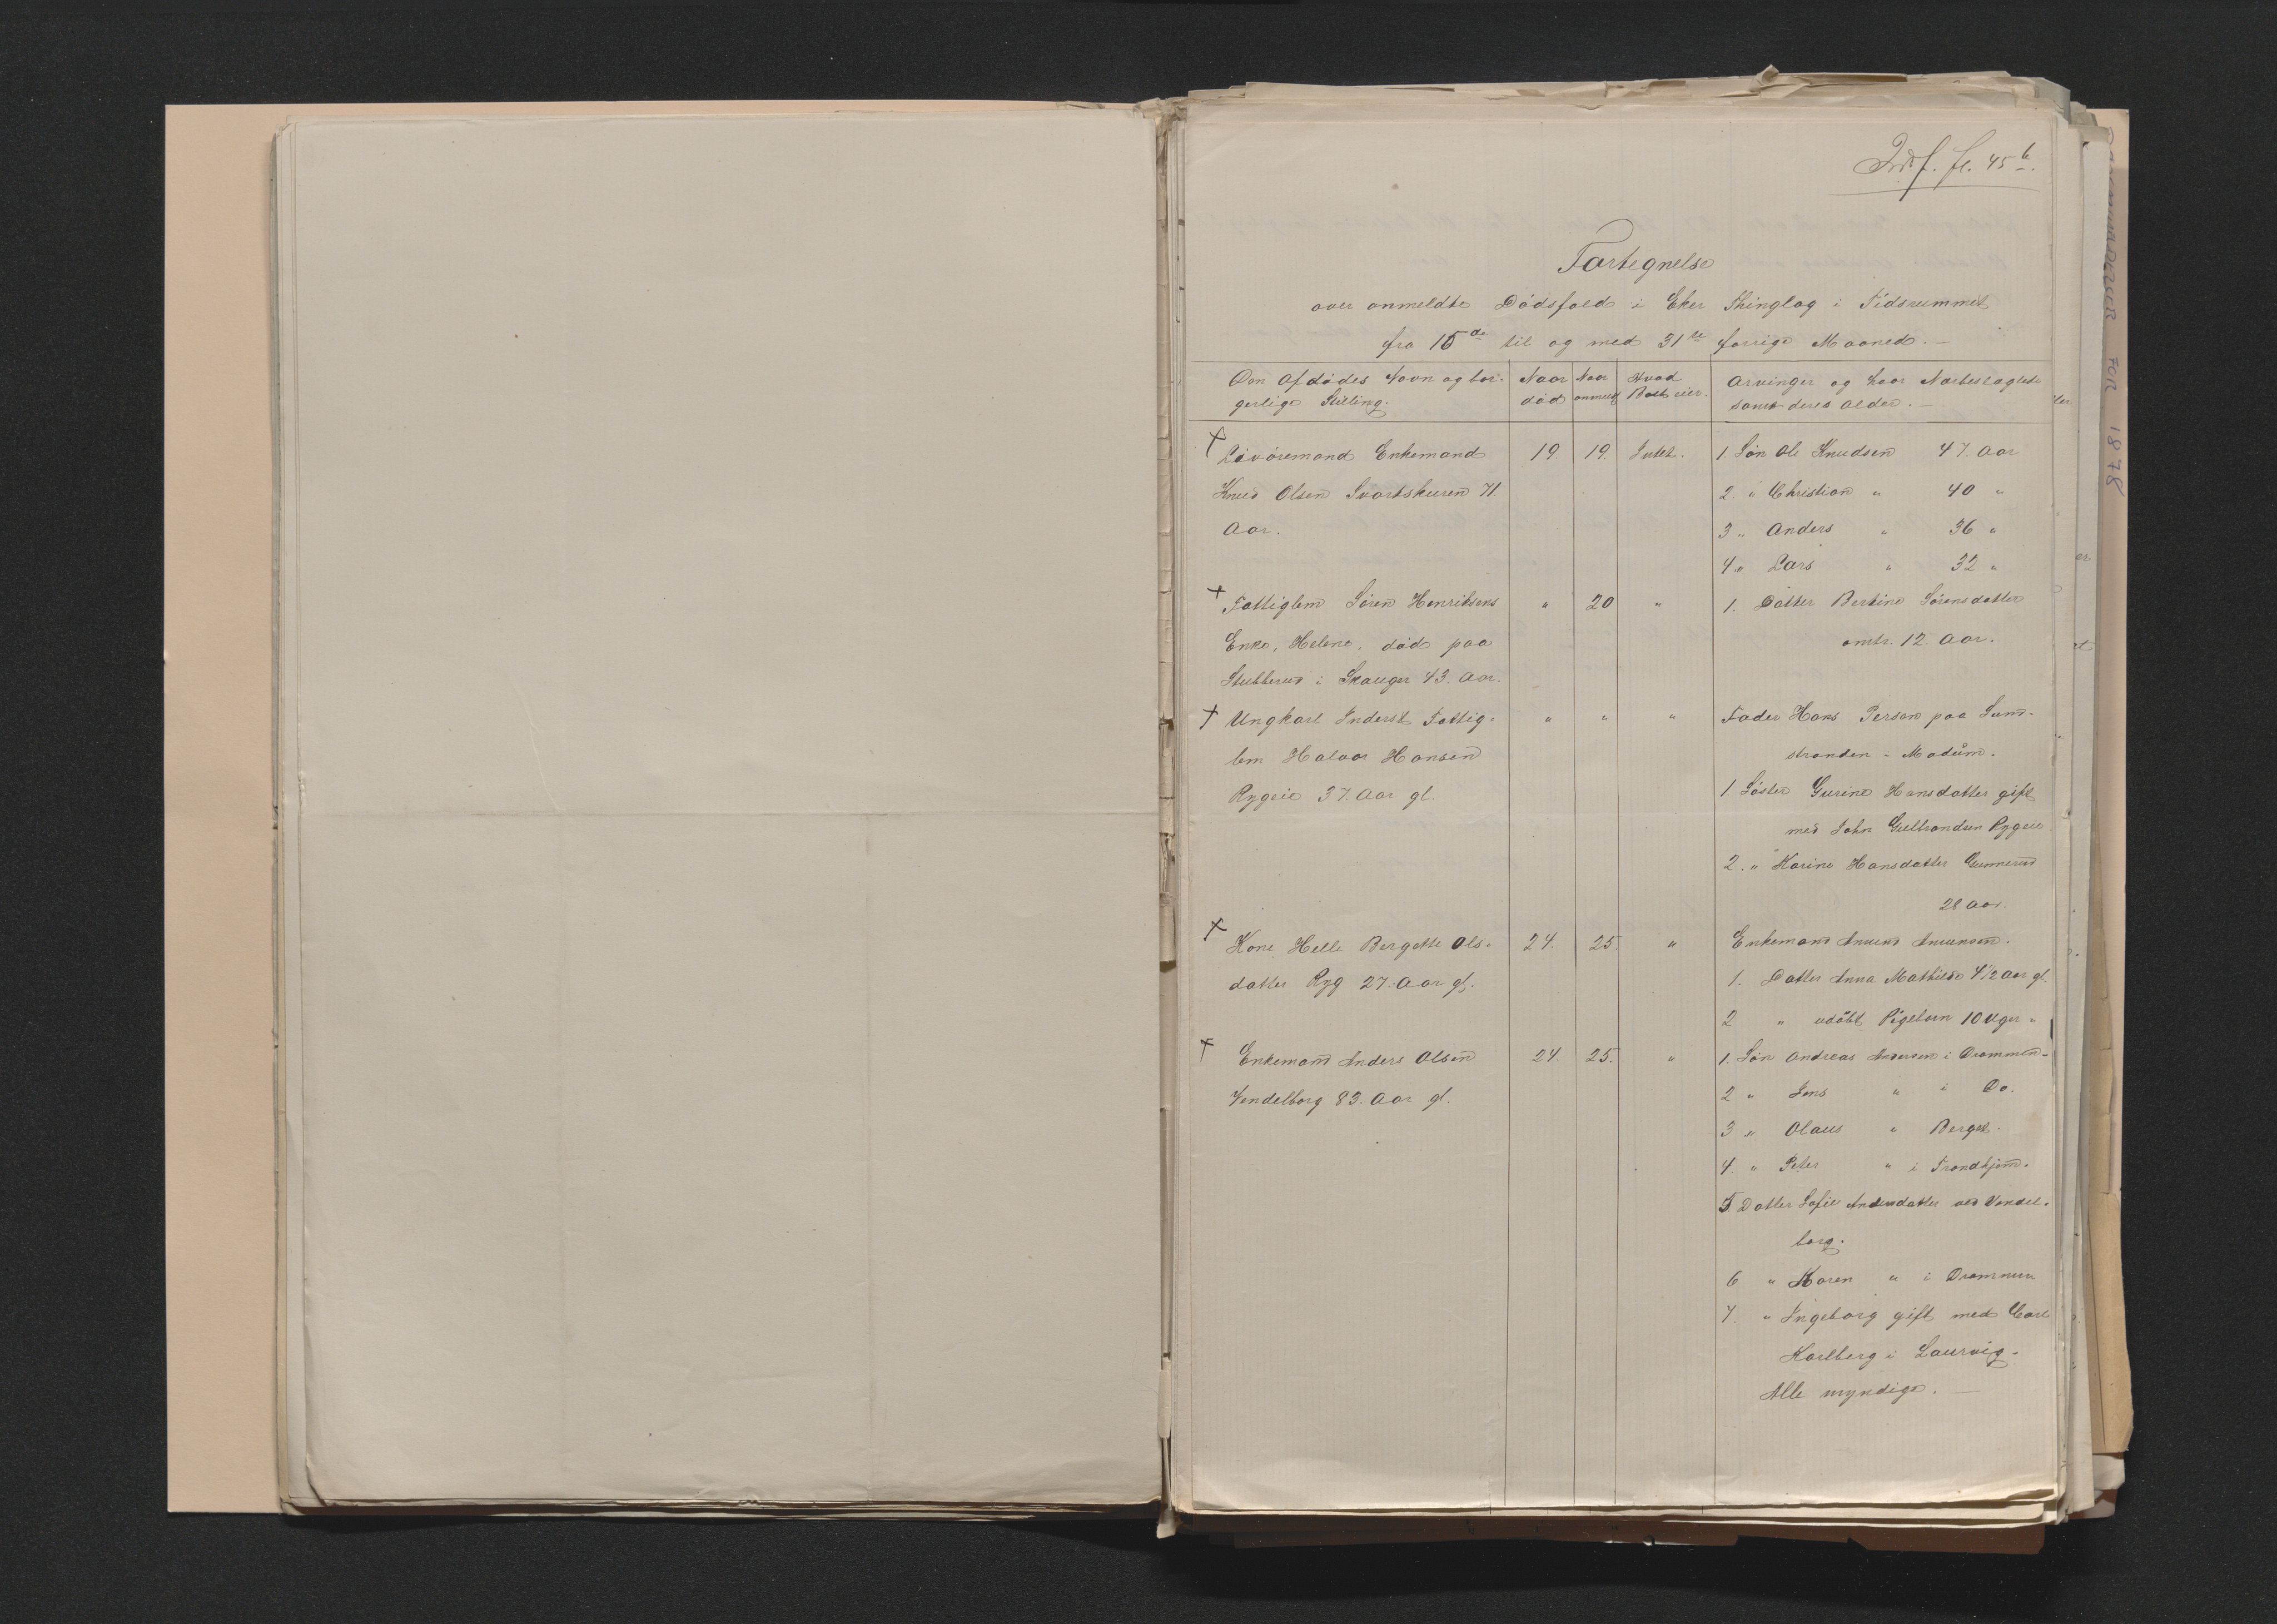 Indf. fl. 45 b.
Fortegnelse
over anmeldte Dødsfald i Eker Thinglag i Tidsrummet
fra 15de til og med 31te forrige Maaned. —
Den Afdødes Navn og bor- Naar Naar Hvad Arvinger og hvor Nærbeslagtet
gerlige Stilling. død anmeld Boet eier. samt deres Alder. —
Enkemand 19 19. Intet. 1. Søn Ole Knudsen 47. Aar
Knud Olsen Svartskuren 71. 2 " Christian " 40 "
Aar. 3 " Anders " 36 "
4 " Lars " 32 "
Fattiglem Søren Henriksens " 20 " 1. Datter Bertine Sørensdatter
Enke, Helene, død paa omtr. 12. Aar.
Stubberud i Skauger 43. Aar.
Ungkarl Inderst Fattig- " " " Fader Hans Persen paa Sum-
lem Halvor Hansen stranden i Modum.
Rygeie 37. Aar gl. 1. Søster Gurine Hansdatter gift
med John Gulbrandsen Rygeie
2. " Karine Hansdatter Gunnerud
28 Aar.
Kone Helle Bergette Ols- 24. 25. " Enkemand Amund Amundsen.
datter Ryg 27. Aar gl. 1. Datter Anna Mathilde 4 1/2 Aar gl.
2 " udøbt Pigebarn 10 Uger "
Enkemand Anders Olsen 24. 25. " 1. Søn Andreas Andersen i Drammen-
Vendelborg 83. Aar gl. 2 " Jens " i Do.
3 " Olaus " Berget.
4. " Peter " i Trondhjem.
5. Datter Sofie Andersdatter ved Vendel-
borg.
6 " Karen " i Drammen
7. " Ingeborg gift med Carl
Karlberg i Laurvig.
Alle myndige. —
FOR 1878